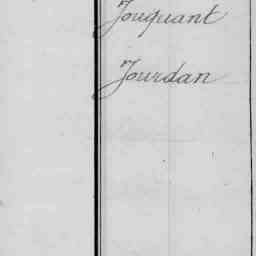 Jouquant
Jourdan